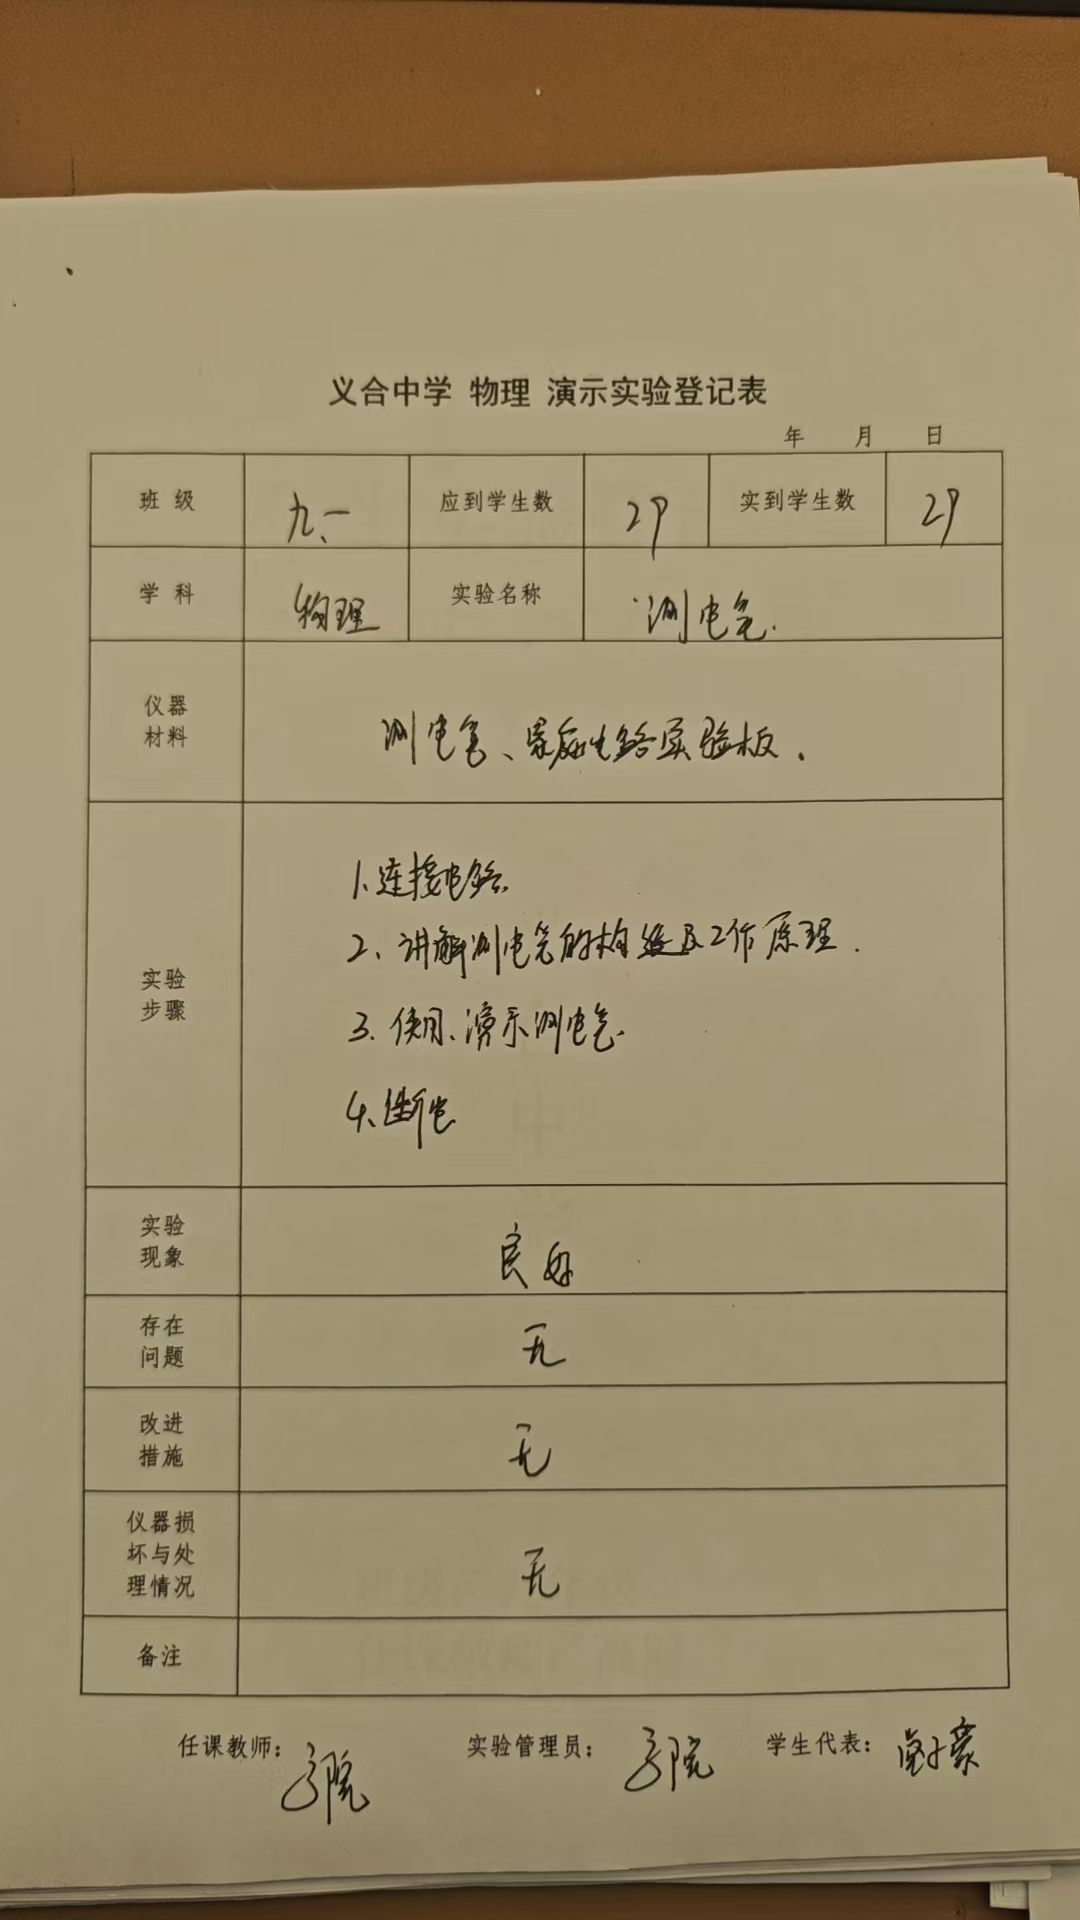 义合中学 物理 演示实验登记表
年 月 日
班级 九.一 应到学生数 29 实到学生数 29
学科 物理 实验名称 测电笔.
仪器
材料
测电笔、家庭电路实验板.
实验
步骤
1.连接电路.
2、讲解测电笔的构造及工作原理.
3.使用、演示测电笔.
4、断电
实验
现象
良好
存在
问题
无
改进
措施
无
仪器损
坏与处
理情况
无
备注
任课教师:
实验管理员:
学生代表: